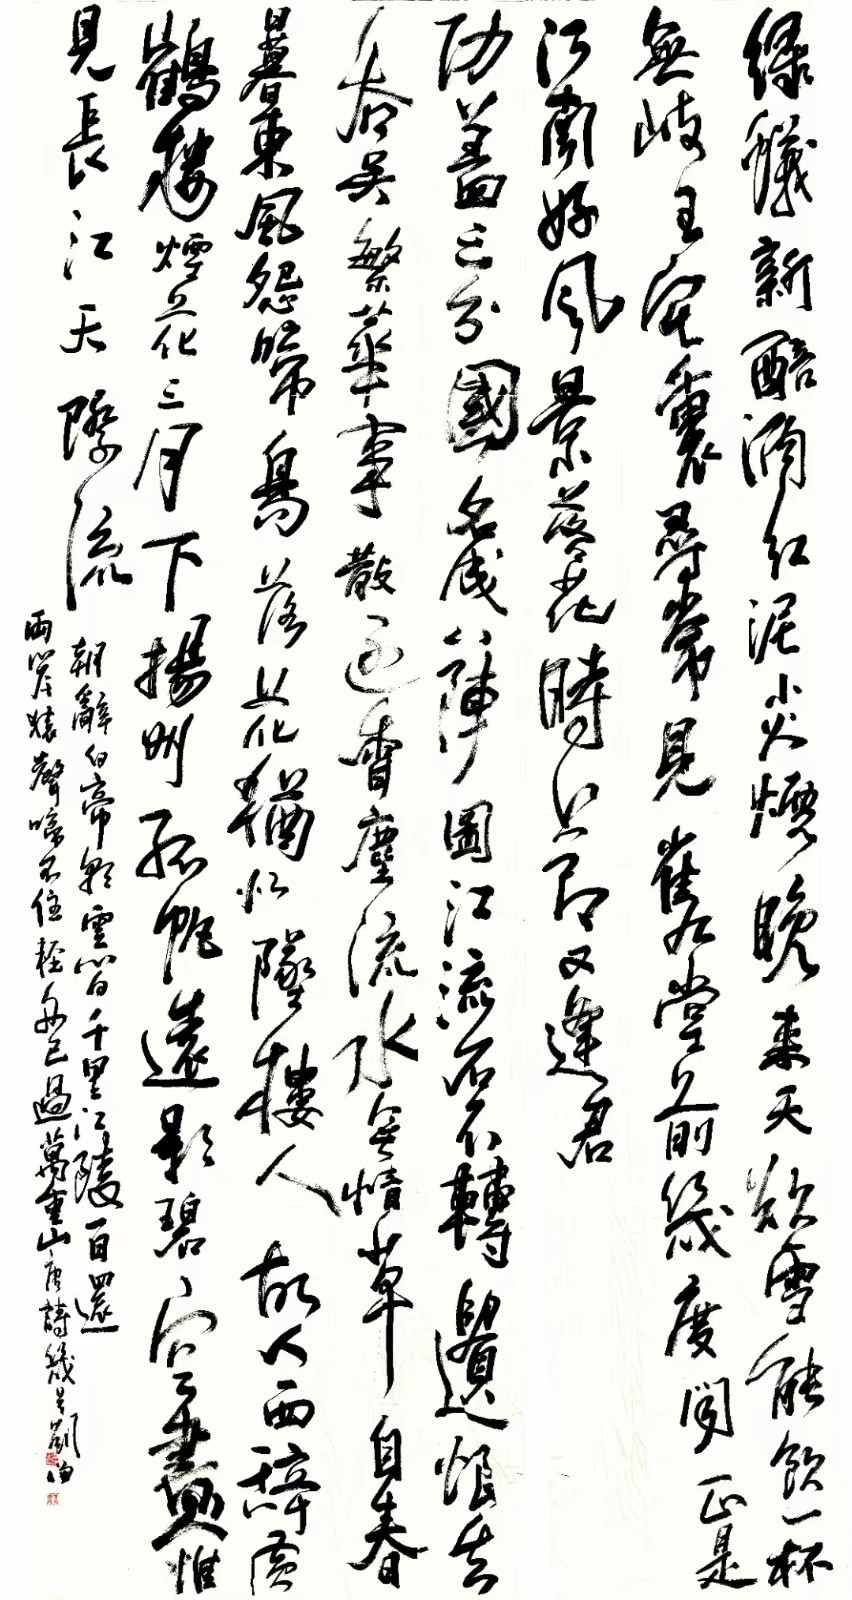 绿蟻新醅酒紅泥小火爐晚来天欲雪能飲一杯
無岐王宅裏尋常見崔九堂前幾度聞正是
江南好風景落花時節又逢君
功蓋三分國名成八陣圖江流石不轉遺恨失
吞吴繁華事散逐香塵流水無情草自春
日暮東風怨啼鳥落花猶似墜樓人故人西辭黄
鶴樓煙花三月下揚州孤帆遠影碧空盡惟
見長江天際流
朝辭白帝彩雲間千里江陵一日還
兩岸猿聲啼不住輕舟已過萬重山唐詩幾首劉